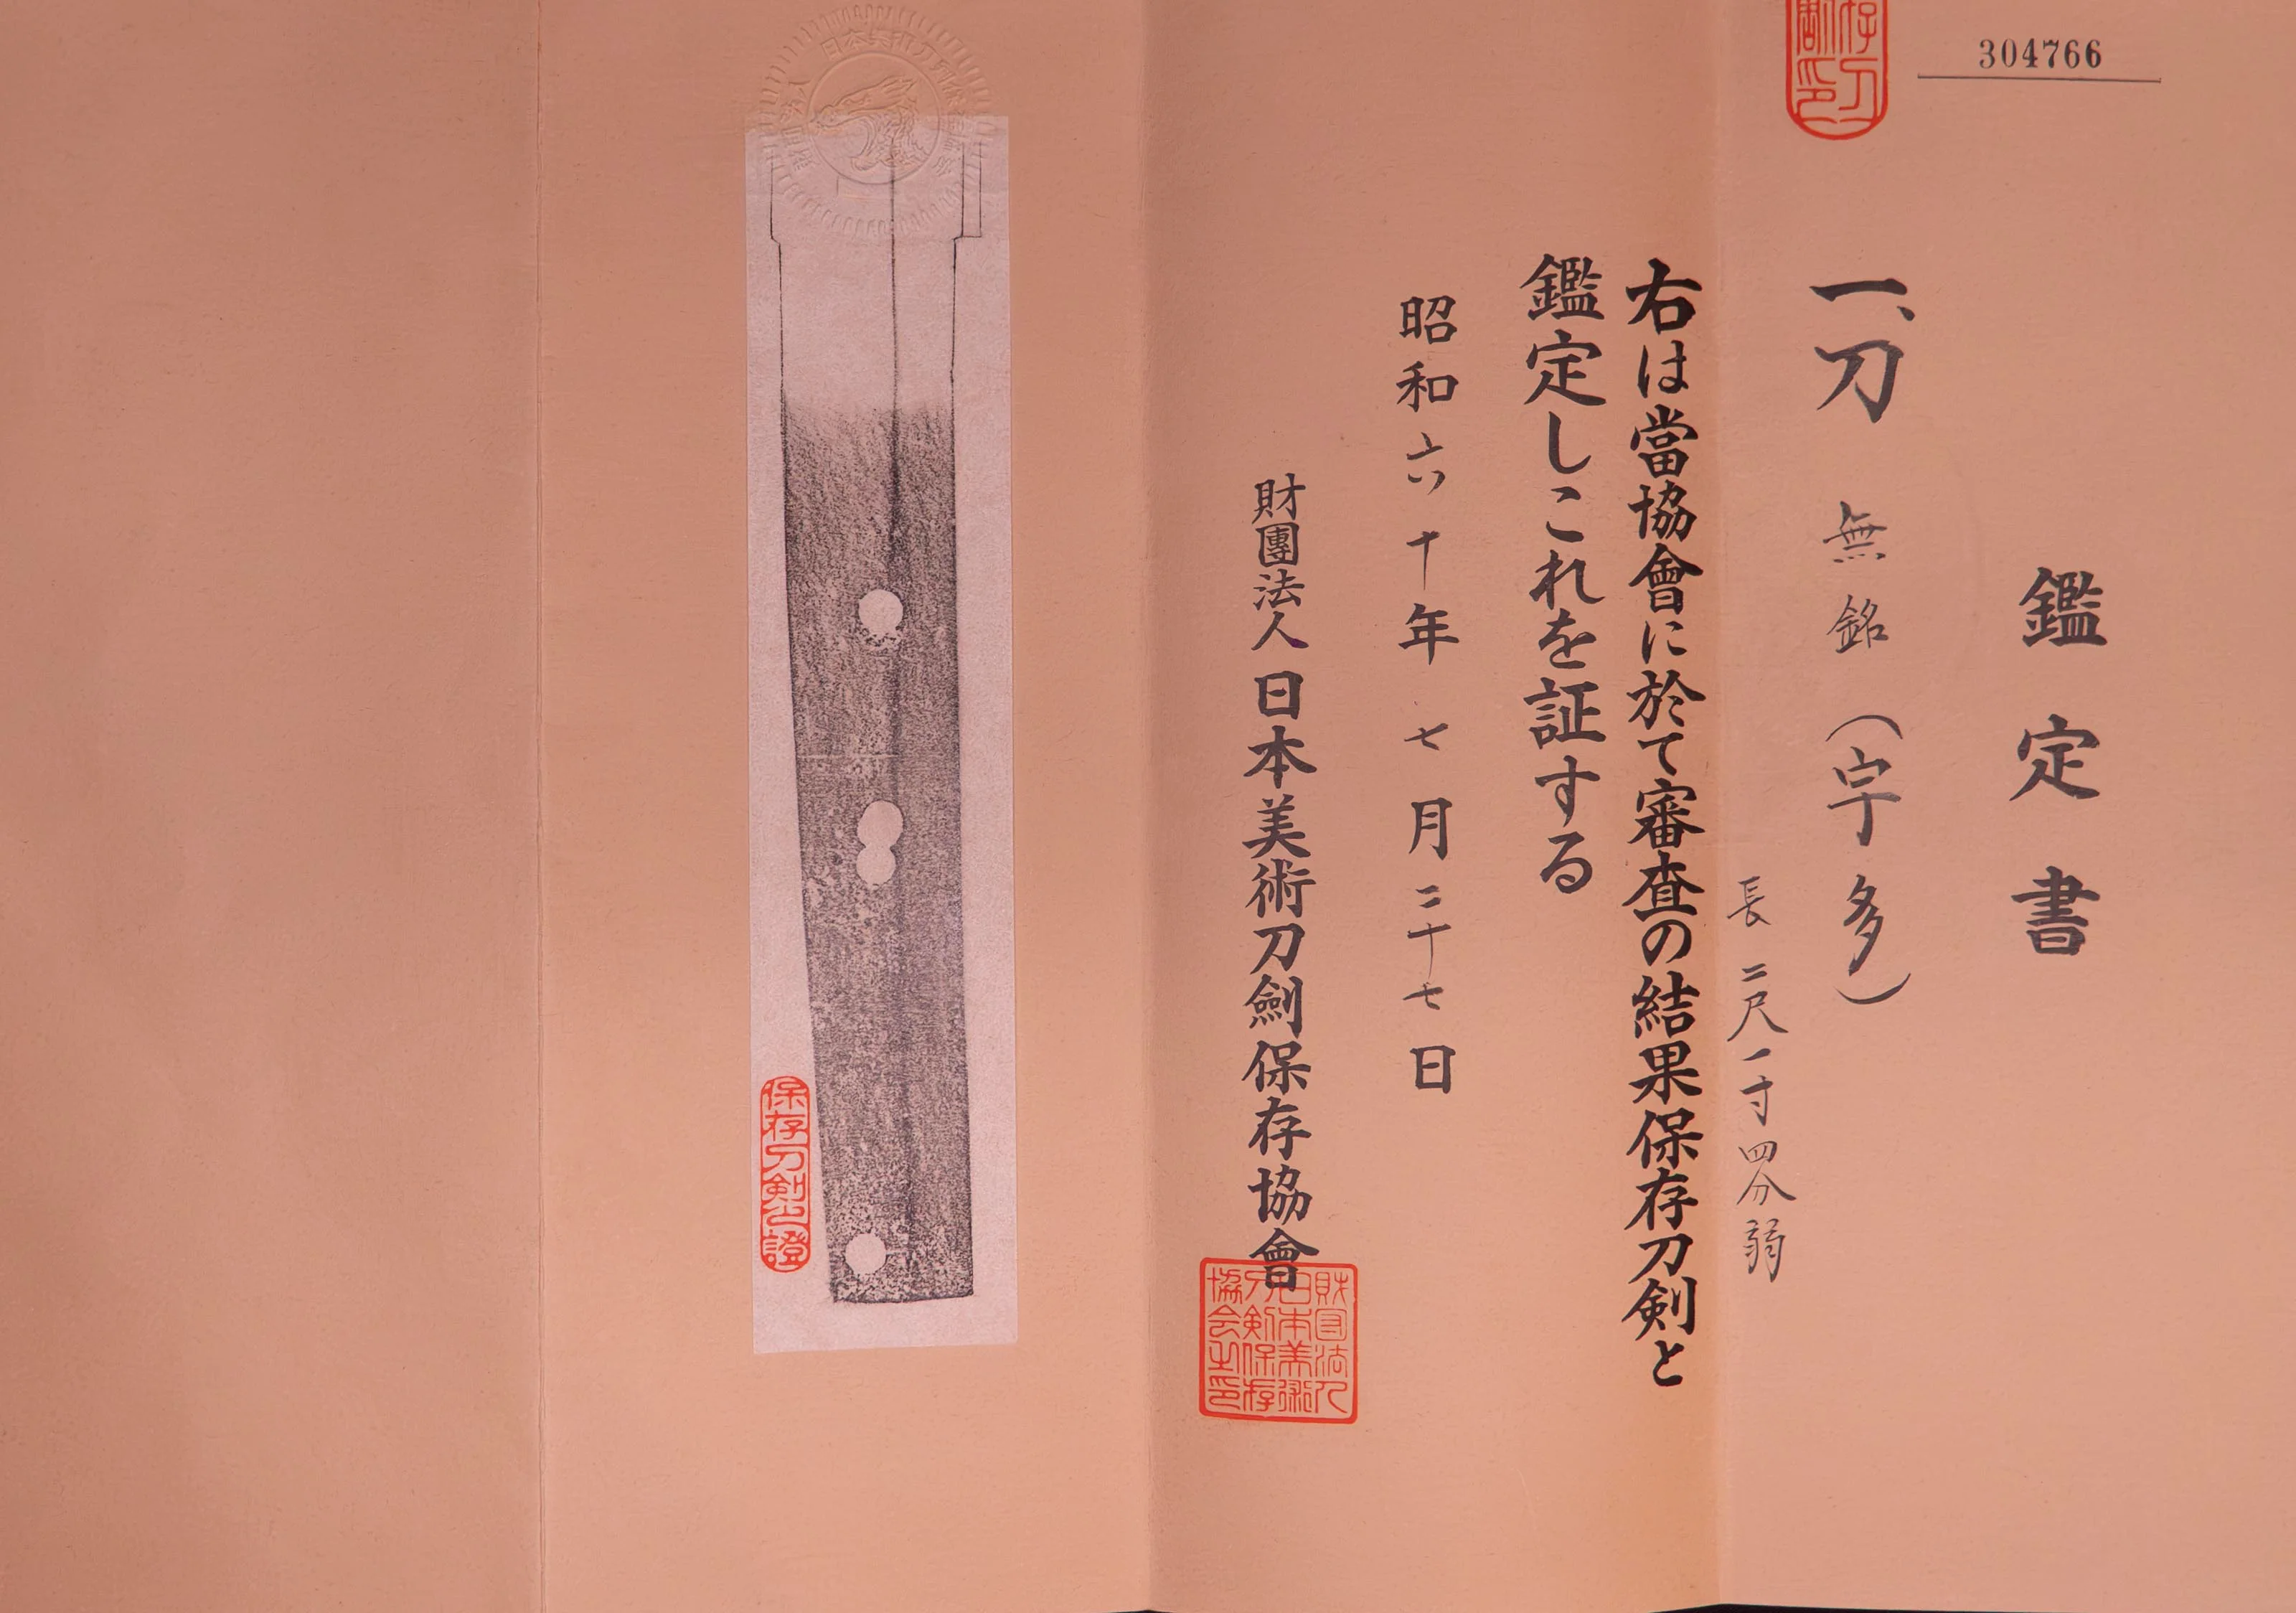 304766
鑑定書
一、刀 無銘(宇多)
長 二尺一寸四分弱
右は當協會に於て審査の結果保存刀剣と
鑑定しこれを証する
昭和六十年七月二十七日
財團法人日本美術刀劍保存協會
財団法人
日本美術
刀剣保存
協会之印
保存刀剣之證